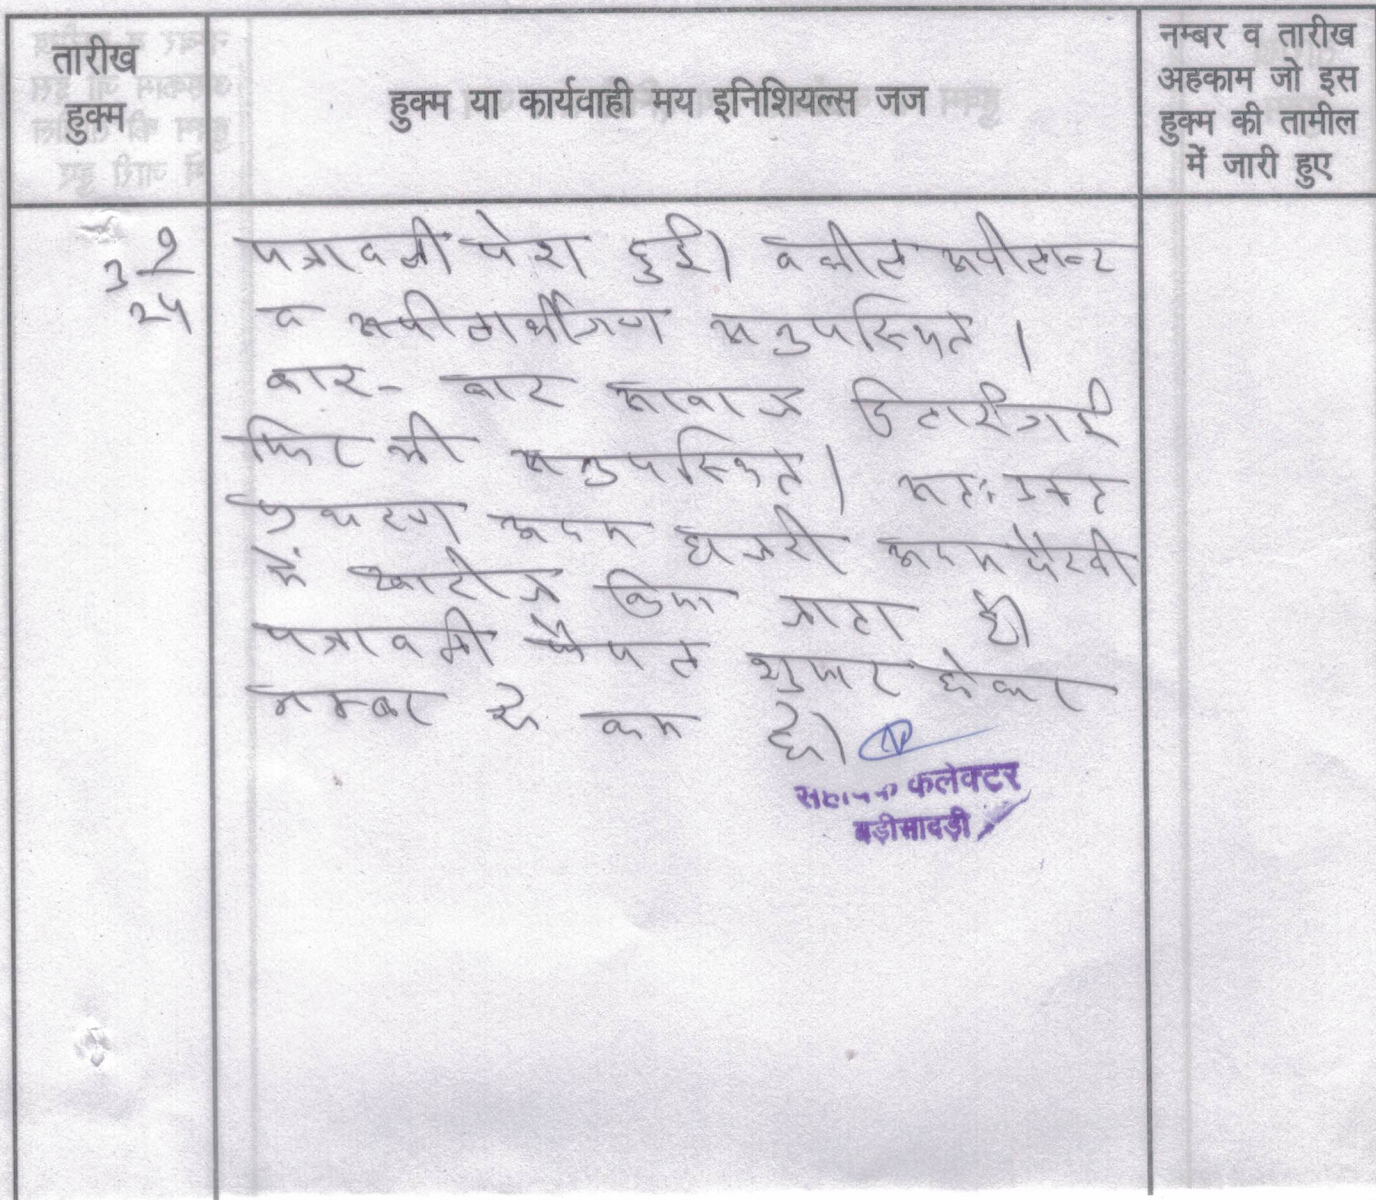 तारीख
हुक्म
हुक्म या कार्यवाही मय इनिशियल्स जज
नम्बर व तारीख
अहकाम जो इस
हुक्म की तामील
में जारी हुए
3 9/24
पत्रावली पेश हुई। वकील अपीलान्ट
व अपीलार्थीगण अनुपस्थित।
बार-बार आवाज दिलाई गई
फिर भी अनुपस्थित। अतः उक्त
प्रकरण अदम हाजरी अदम पैरवी
में खारीज किया जाता है।
पत्रावली फैसल शुमार होकर
नम्बर से कम हो।
सहायक कलेक्टर
बड़ीसादड़ी